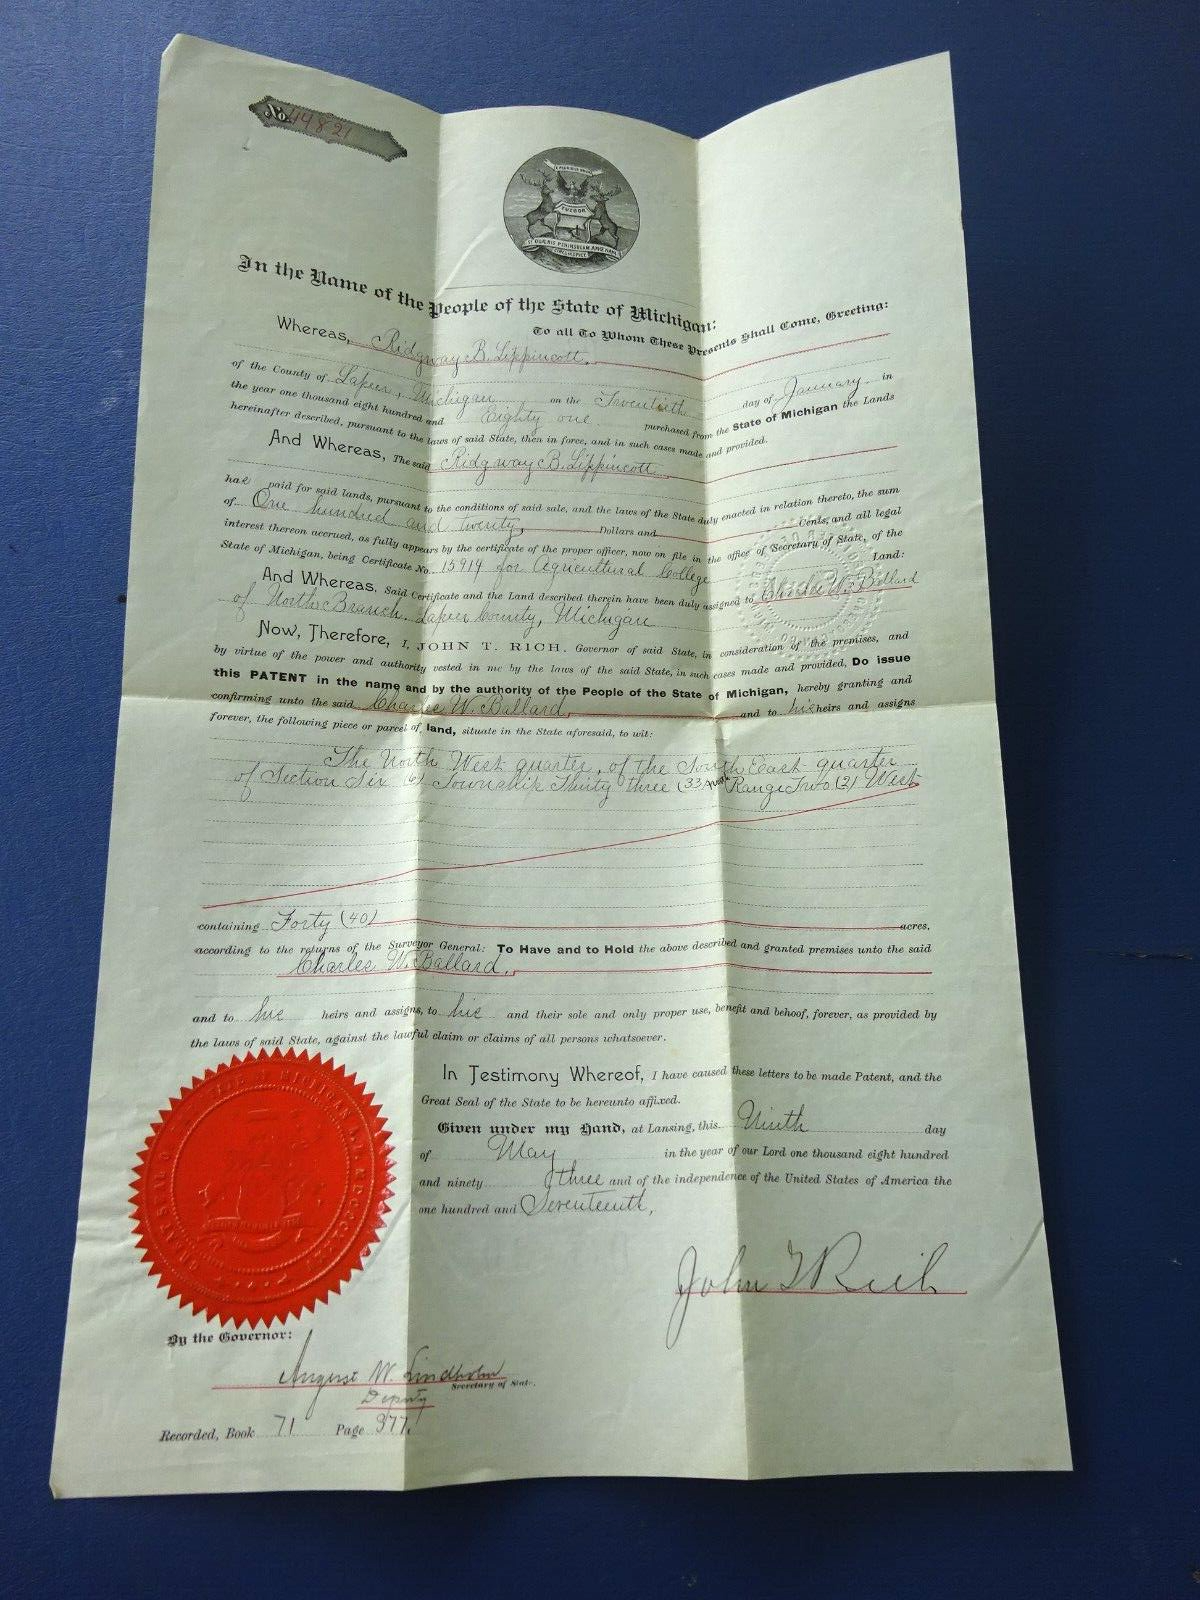 No. 19821
E PLURIBUS UNUM
TUEBOR
SI QUÆRIS PENINSULAM AMŒNAM
CIRCUMSPICE
In the Name of the People of the State of Michigan:
To all To Whom These Presents Shall Come, Greeting:
Whereas, Ridgway B. Lippincott,
of the County of Lapeer, Michigan on the Twentieth day of January in
the year one thousand eight hundred and Eighty one purchased from the State of Michigan the Lands
hereinafter described, pursuant to the laws of said State, then in force, and in such cases made and provided.
And Whereas, The said Ridgway B. Lippincott
has paid for said lands, pursuant to the conditions of said sale, and the laws of the State duly enacted in relation thereto, the sum
of One hundred and twenty, Dollars and Cents, and all legal
interest thereon accrued, as fully appears by the certificate of the proper officer, now on file in the office of Secretary of State, of the
State of Michigan, being Certificate No. 15914 for Agricultural College Land:
And Whereas, Said Certificate and the Land described therein have been duly assigned to Charles W. Ballard
of North Branch, Lapeer County, Michigan
Now, Therefore, I, JOHN T. RICH, Governor of said State, in consideration of the premises, and
by virtue of the power and authority vested in me by the laws of the said State, in such cases made and provided, Do issue
this PATENT in the name and by the authority of the People of the State of Michigan, hereby granting and
confirming unto the said Charles W. Ballard, and to his heirs and assigns
forever, the following piece or parcel of land, situate in the State aforesaid, to wit:
The North West quarter, of the South East quarter
of Section Six (6) Township Thirty three (33) North Range Two (2) West
containing Forty (40) acres,
according to the returns of the Surveyor General: To Have and to Hold the above described and granted premises unto the said
Charles W. Ballard,
and to his heirs and assigns, to his and their sole and only proper use, benefit and behoof, forever, as provided by
the laws of said State, against the lawful claim or claims of all persons whatsoever.
In Testimony Whereof, I have caused these letters to be made Patent, and the
Great Seal of the State to be hereunto affixed.
Given under my Hand, at Lansing, this Ninth day
of May in the year of our Lord one thousand eight hundred
and ninety three and of the independence of the United States of America the
one hundred and Seventeenth,
John T Rich
By the Governor:
August W. Lindholm
Secretary of State.
Deputy
Recorded, Book 71 Page 377.